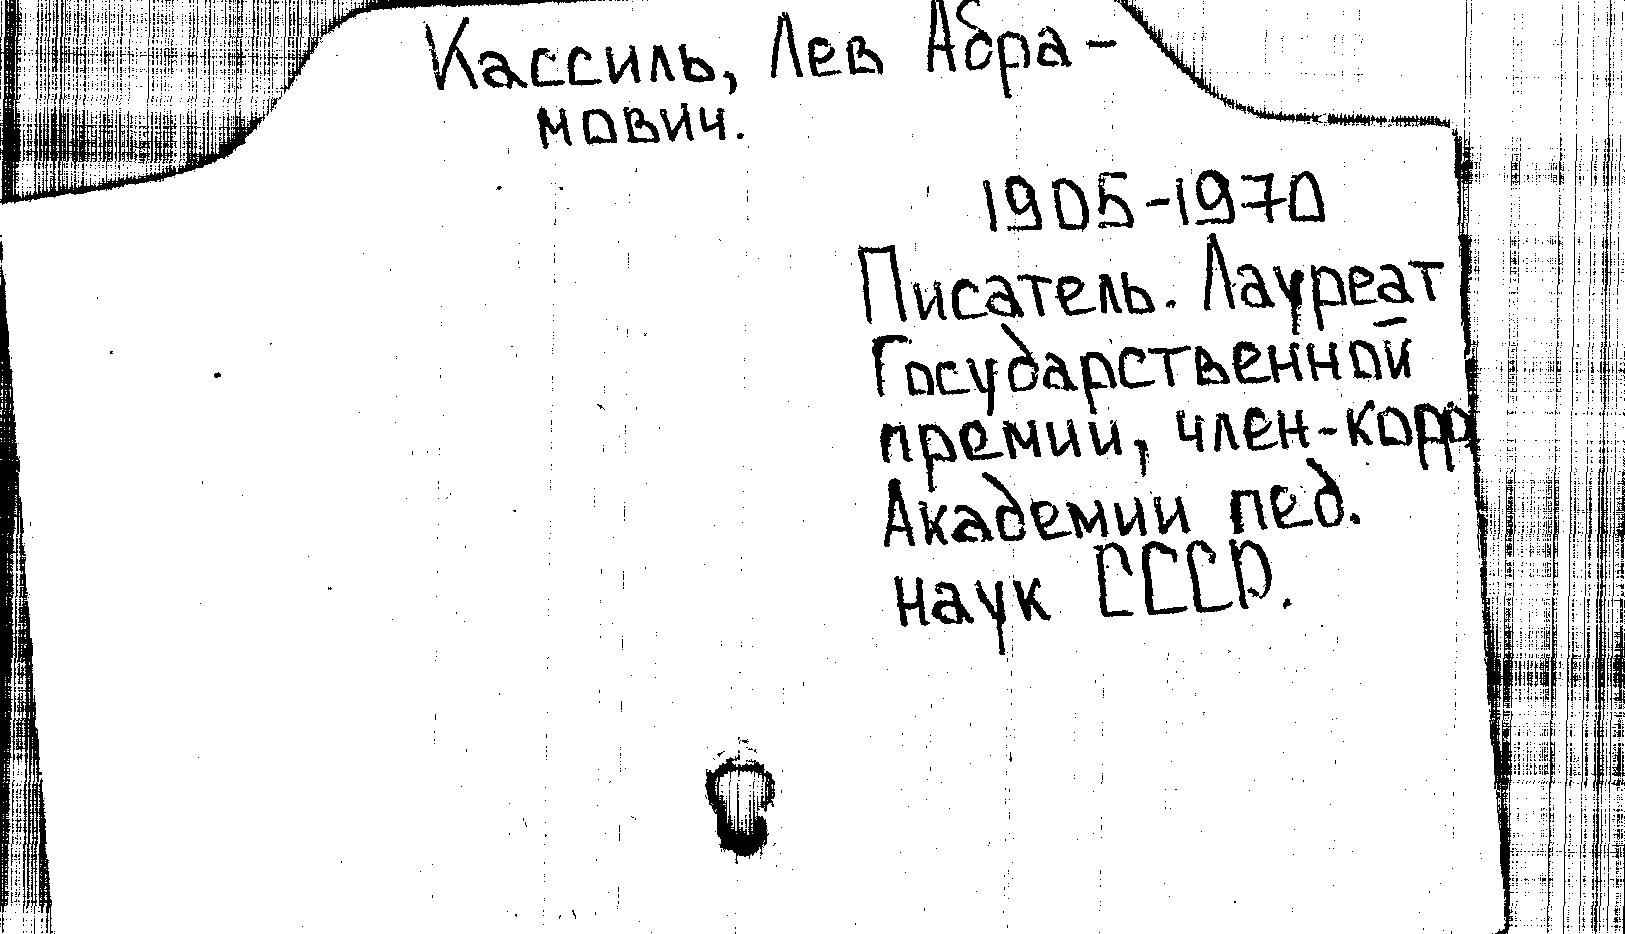 Кассиль, Лев Абра-
мович.
1905-1970
Писатель. Лауреат
Государственной
премии, член-корр
Академии пед.
наук СССР.